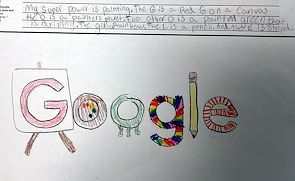 My super power is painting. The G is a Red G on a Canvas
the O is a painters palet. The other O is a painted green that
is dripping. The g is Rainbow. The L is a pencil. And the E is striped.
Google